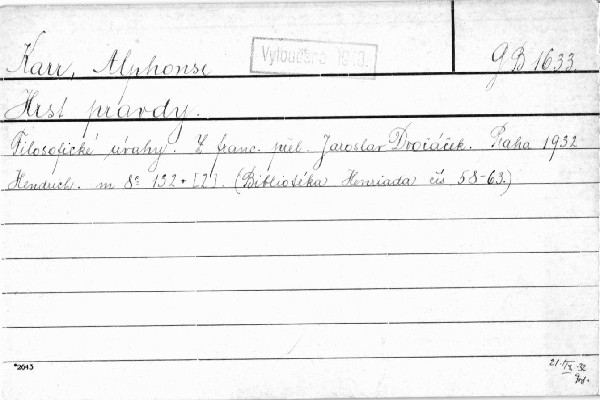 Karr, Alphonse
Vyloučeno
9 B 1633.
Hrst pravdy.
Filosofické úvahy. Z franc. přel. Jaroslav Dvořáček. Praha 1932
Hendrich. m 8° 132 + [2]. (Bibliotéka Henriada čís 58-63.)
*2643